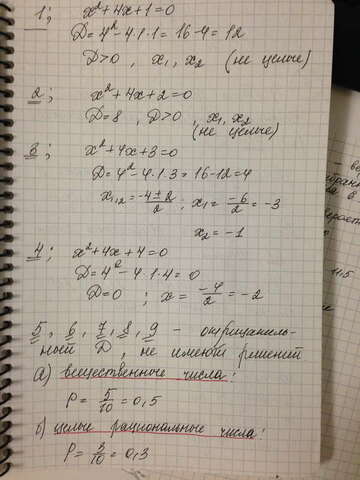 1; x²+4x+1=0
D=4²-4·1·1=16-4=12
D>0, x₁, x₂ (не целые)
2; x²+4x+2=0
D=8, D>0, x₁, x₂
(не целые)
3; x²+4x+3=0
D=4²-4·1·3=16-12=4
x₁,₂=-4±2/2; x₁=-6/2=-3
x₂=-1
4; x²+4x+4=0
D=4²-4·1·4=0
D=0; x=-4/2=-2
5, 6, 7, 8, 9 - отрицатель-
ный D, не имеют решений
а) вещественные числа:
P=5/10=0,5
б) целые рациональные числа:
P=3/10=0,3